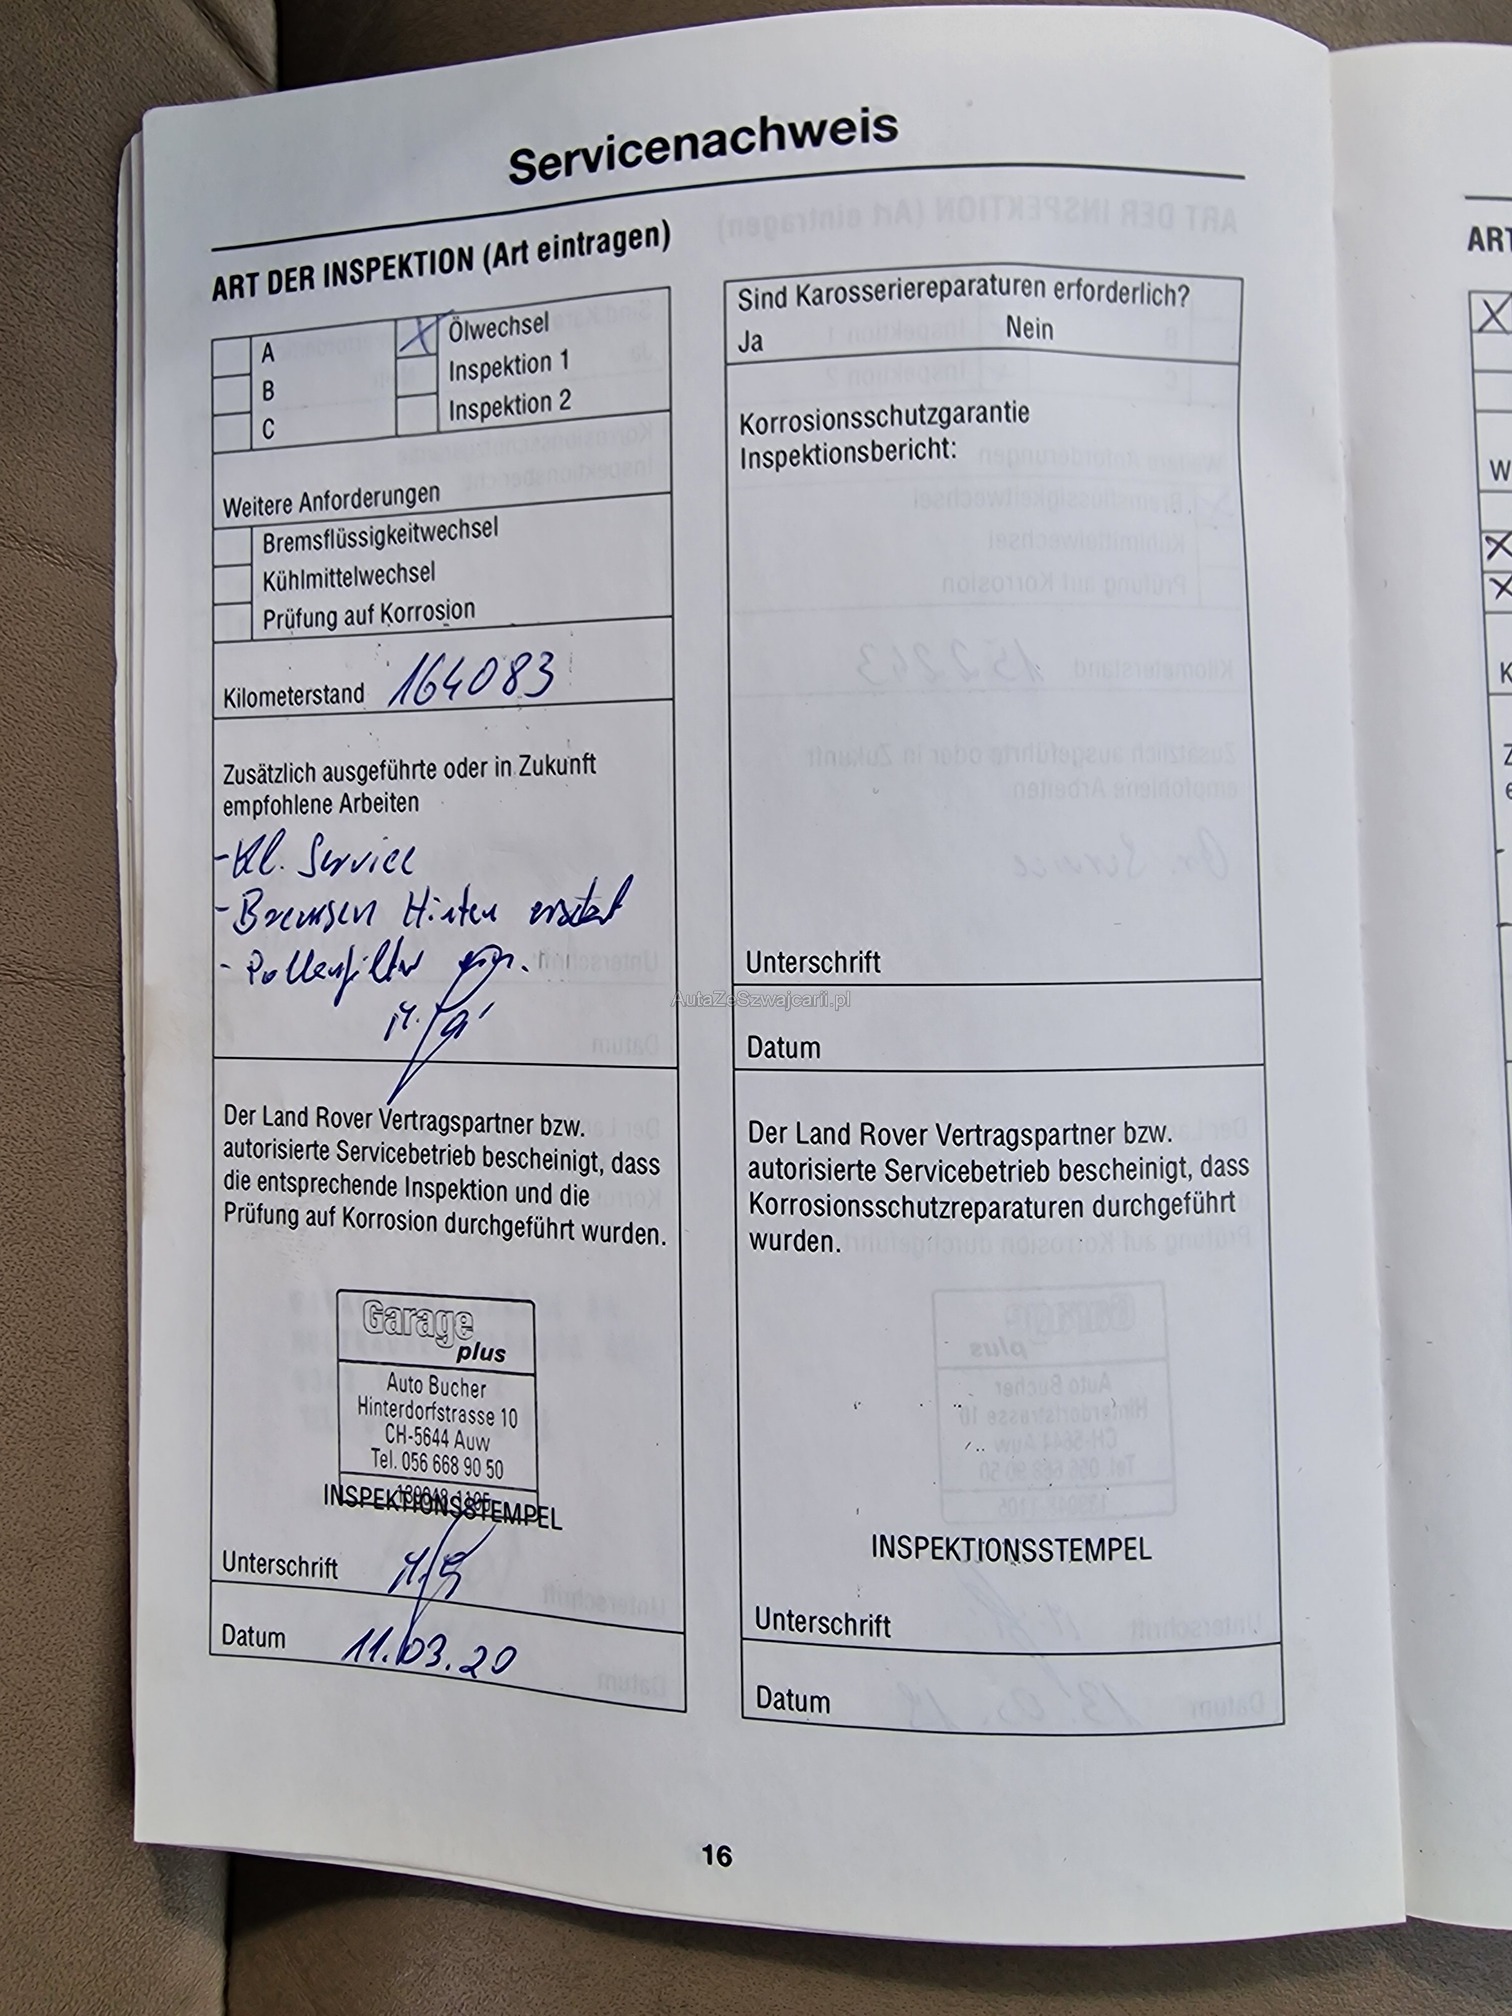 Servicenachweis
ART DER INSPEKTION (Art eintragen)
A
B
C
X Ölwechsel
Inspektion 1
Inspektion 2
Weitere Anforderungen
Bremsflüssigkeitwechsel
Kühlmittelwechsel
Prüfung auf Korrosion
Kilometerstand 164083
Zusätzlich ausgeführte oder in Zukunft
empfohlene Arbeiten
- Kl. Service
- Bremsen Hinten ersetzt
- Pollenfilter
Der Land Rover Vertragspartner bzw.
autorisierte Servicebetrieb bescheinigt, dass
die entsprechende Inspektion und die
Prüfung auf Korrosion durchgeführt wurden.
Garage
plus
Auto Bucher
Hinterdorfstrasse 10
CH-5644 Auw
Tel. 056 668 90 50
INSPEKTIONSSTEMPEL
Unterschrift
Datum 11.03.20
Sind Karosseriereparaturen erforderlich?
Ja Nein
Korrosionsschutzgarantie
Inspektionsbericht:
Unterschrift
Datum
Der Land Rover Vertragspartner bzw.
autorisierte Servicebetrieb bescheinigt, dass
Korrosionsschutzreparaturen durchgeführt
wurden.
INSPEKTIONSSTEMPEL
Unterschrift
Datum
16
AutaZeSzwajcarii.pl
ART
X
W
X
X
K
Z
e